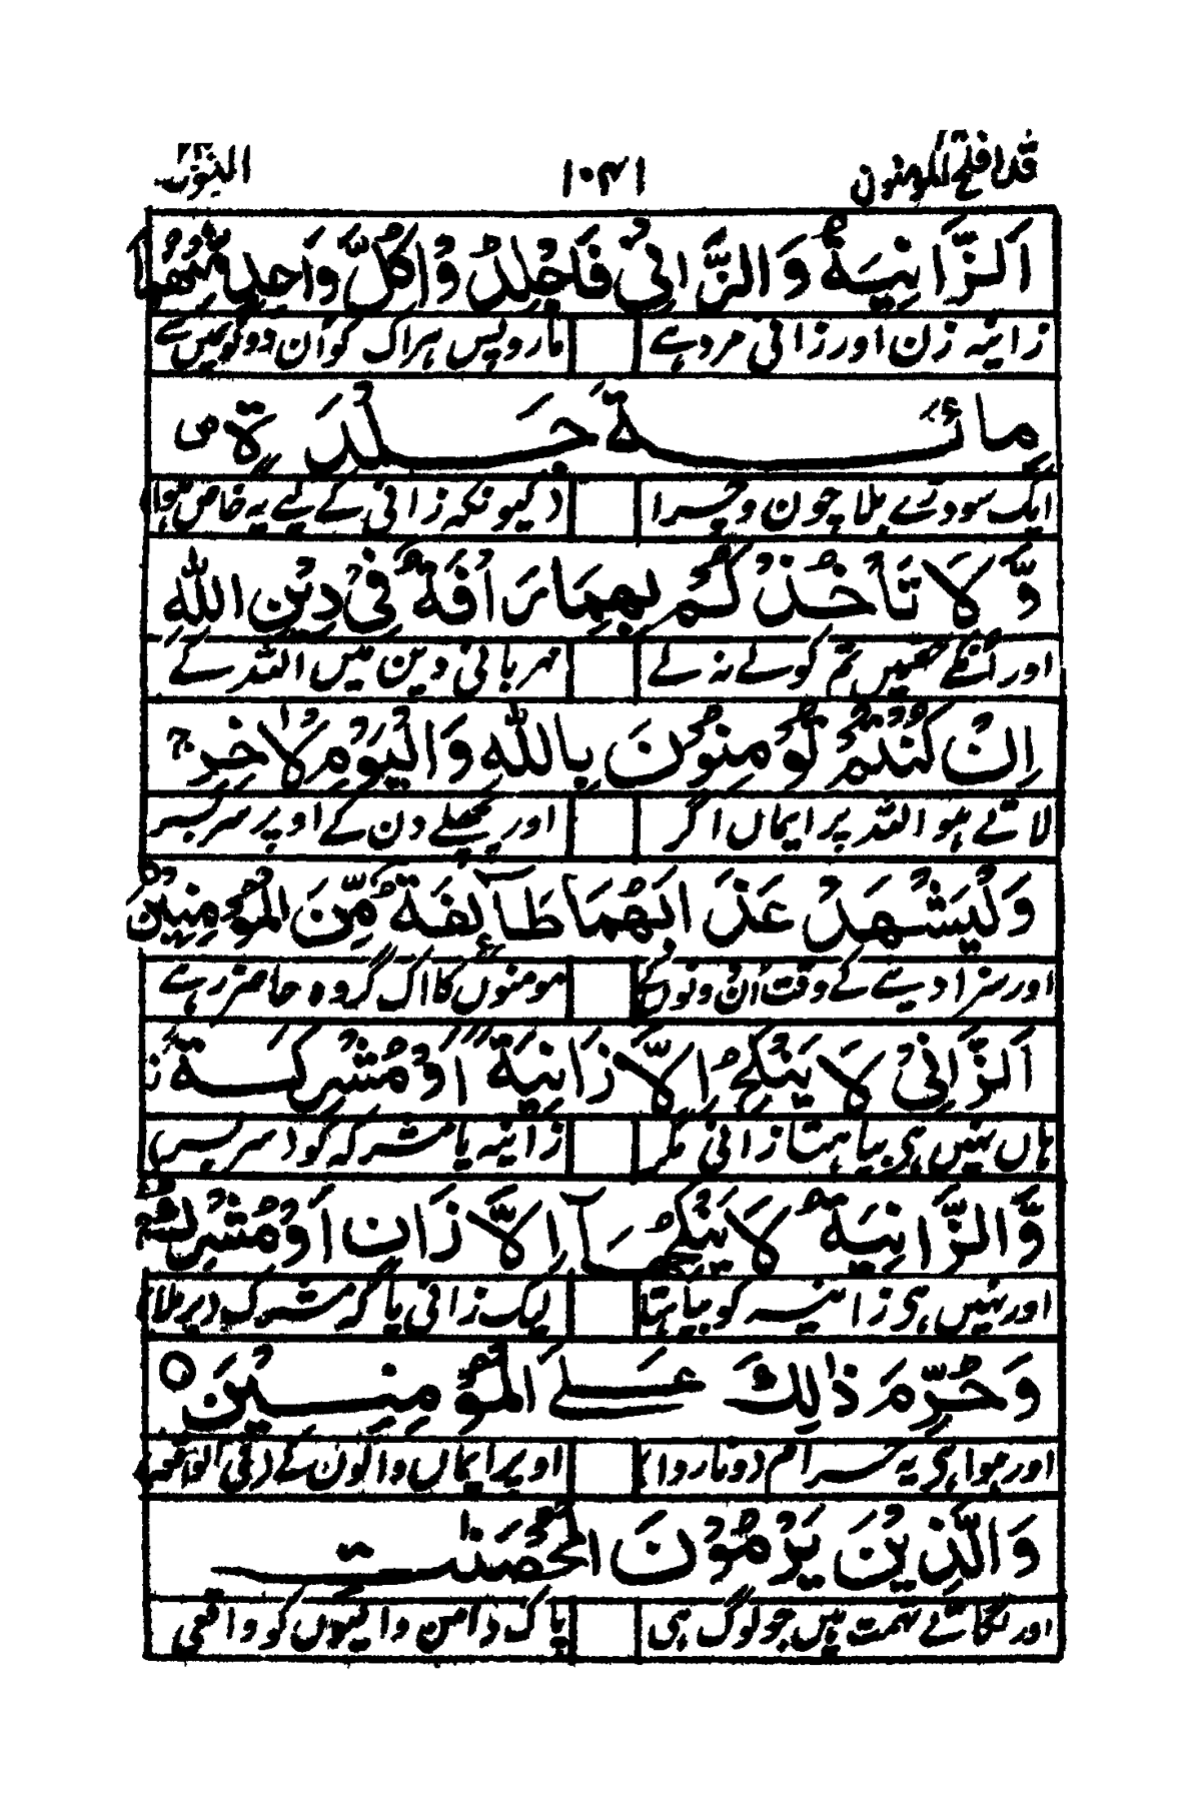 قد افلح المؤمنون ۱۰۴۱ النور ۲۴
اَلزَّانِيَةُ وَالزَّانِيْ فَاجْلِدُوْا كُلَّ وَاحِدٍ مِّنْهُمَا
زانیہ زن اور زانی مرد ہے مارو پس ہر اک کو ان دونوں میں سے
مِائَةَ جَلْدَةٍ ص
ایک سو درے بلا چون و چرا (کیونکہ زانی کے لیے یہ خاص
وَّلَا تَأْخُذْكُمْ بِهِمَا رَأْفَةٌ فِيْ دِيْنِ اللّٰهِ
اور انکے تمھیں تم کو لے نہ لے مہربانی دین میں اللہ کے
اِنْ كُنْتُمْ تُؤْمِنُوْنَ بِاللّٰهِ وَالْيَوْمِ الْاٰخِرِ ج
لاتے ہو اللہ پر ایماں اگر اور پچھلے دن کے اوپر سربسر
وَلْيَشْهَدْ عَذَابَهُمَا طَآئِفَةٌ مِّنَ الْمُؤْمِنِيْنَ ○
اور سزا دینے کے وقت ان دونوں کے مومنوں کا اک گروہ حاضر رہے
اَلزَّانِيْ لَا يَنْكِحُ اِلَّا زَانِيَةً اَوْ مُشْرِكَةً ز
ہاں نہیں ہی بیاہتا زانی مگر زانیہ یا مشرکہ کو (سربسر)
وَّالزَّانِيَةُ لَا يَنْكِحُهَآ اِلَّا زَانٍ اَوْ مُشْرِكٌ ج
اور نہیں ہی زانیہ کو بیاہتا لیک زانی یا کہ مشرک (برملا)
وَحُرِّمَ ذٰلِكَ عَلَى الْمُؤْمِنِيْنَ ○
اور ہوا ہی یہ حرام (و ناروا) اوپر ایماں والوں کے (فی الواقعہ)
وَالَّذِيْنَ يَرْمُوْنَ الْمُحْصَنٰتِ
اور لگاتے تہمت ہیں جو لوگ ہی پاک دامن والیوں کو واقعی